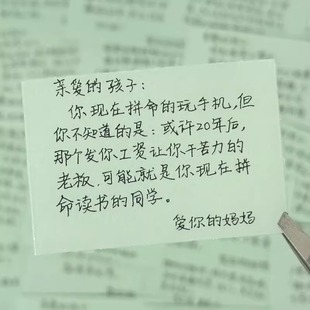 亲爱的孩子：
你现在拼命的玩手机，但
你不知道的是：或许20年后，
那个发你工资让你干苦力的
老板，可能就是你现在拼
命读书的同学。
爱你的妈妈